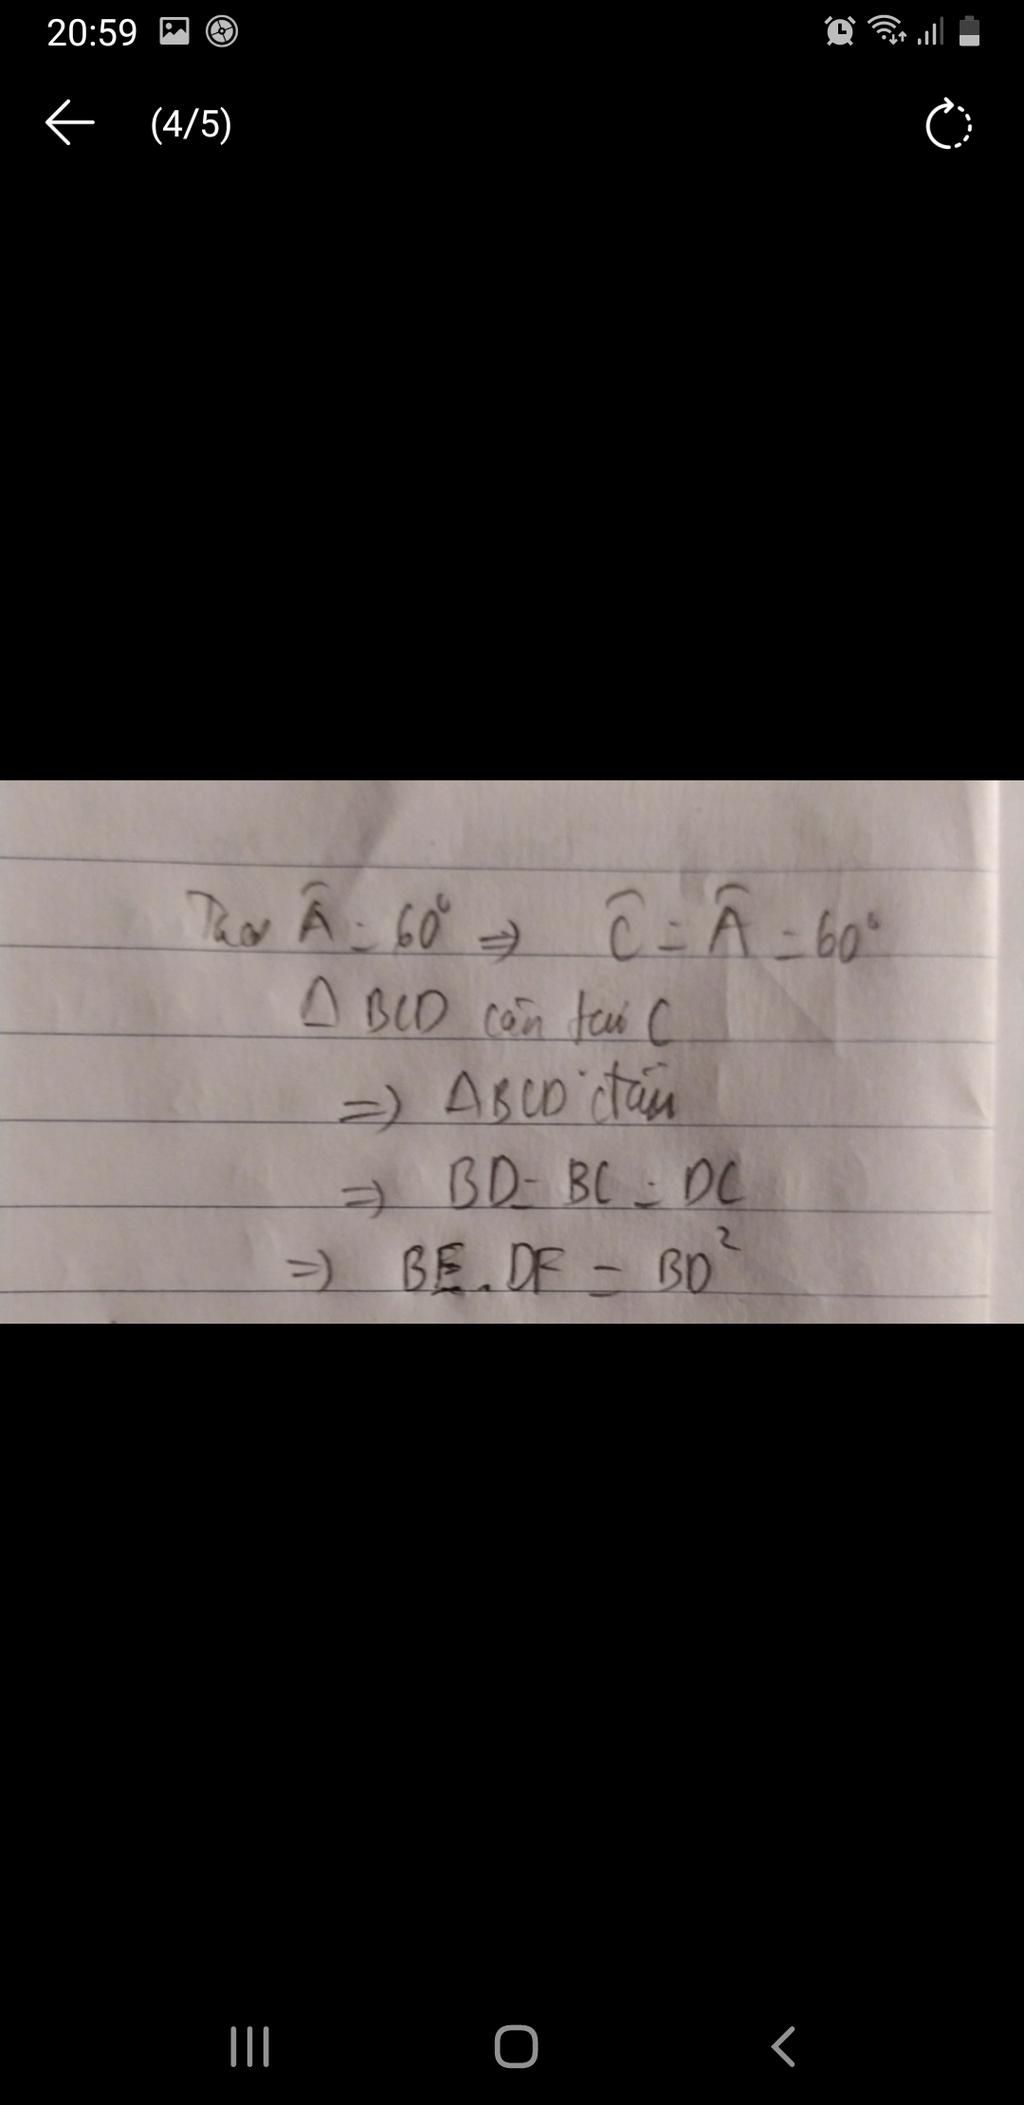 20:59
(4/5)
Â = 60° => Ĉ = Â = 60°
Δ BCD cân tại C
=> ΔBCD đều
=> BD = BC = DC
=> BE . DF = BD²